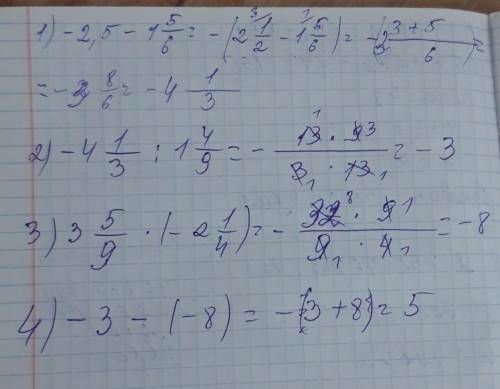 1) -2,5 - 1 5/6 = -(2 1/2 - 1 5/6) = -(3 3+5/6) =
= -3 8/6 = -4 1/3
2) -4 1/3 : 1 4/9 = - 13 · 9 3/3 1 · 13 1 = -3
3) 3 5/9 · (-2 1/4) = - 32 8 · 9 1/9 1 · 4 1 = -8
4) -3 - (-8) = -(3 + 8) = 5